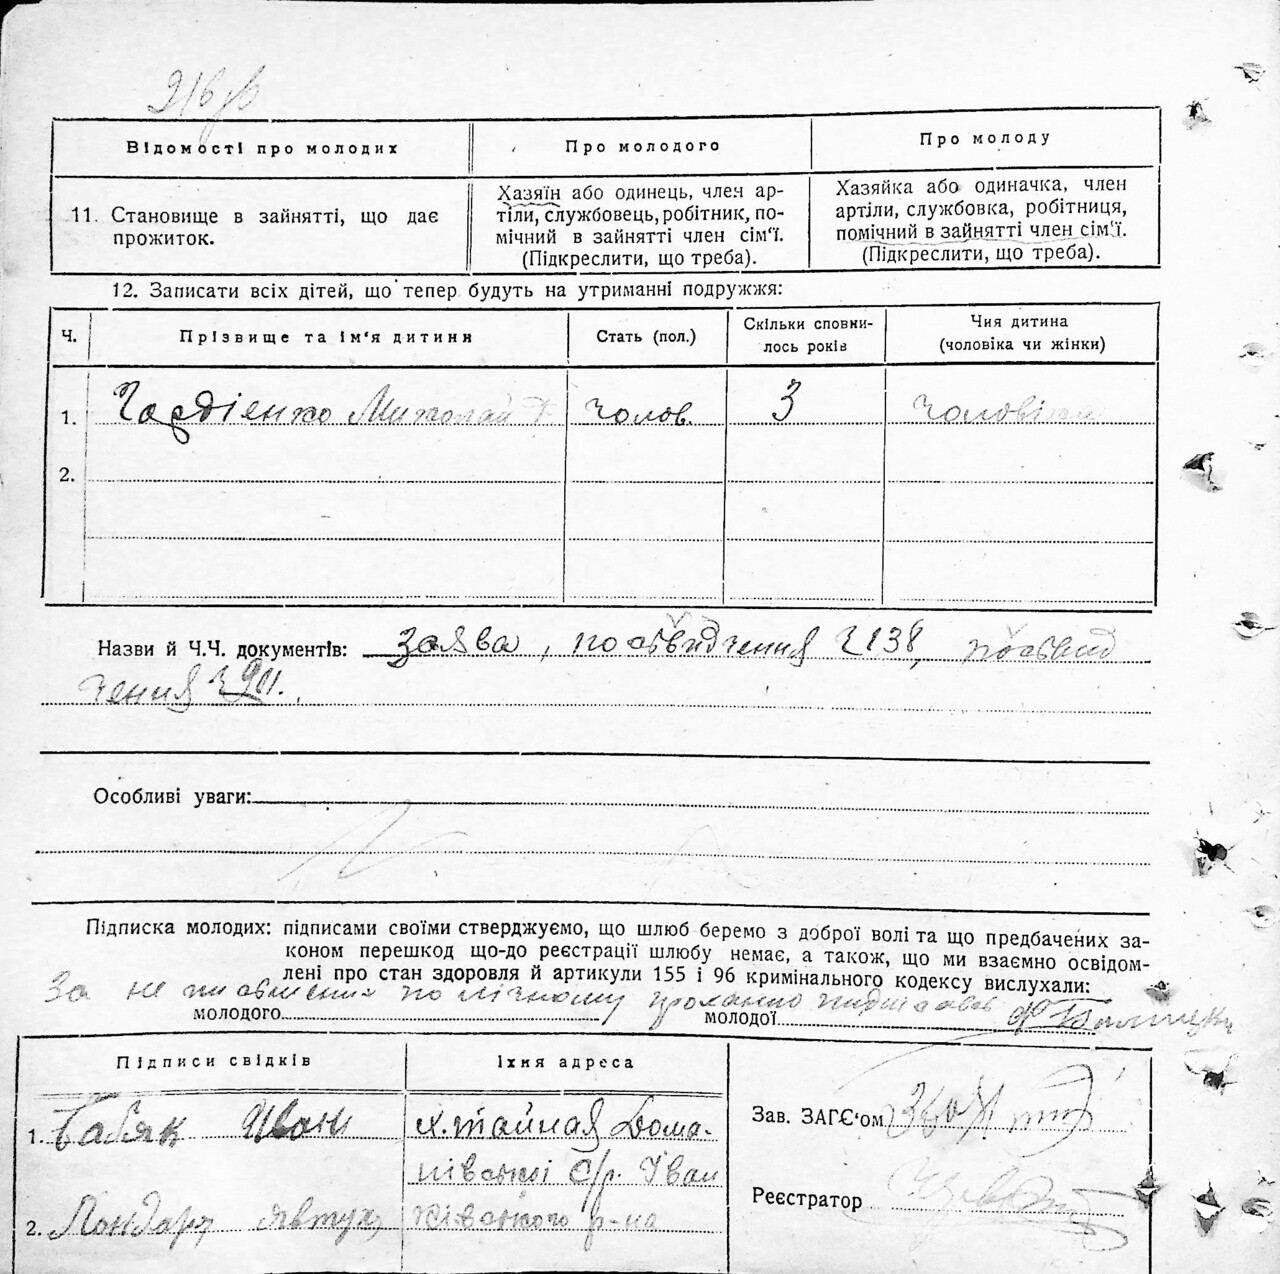 216 зв
Відомості про молодих
Про молодого
Про молоду
11. Становище в зайнятті, що дає
прожиток.
Хазяїн або одинець, член ар-
тіли, службовець, робітник, по-
мічний в зайнятті член сім'ї.
(Підкреслити, що треба).
Хазяйка або одиначка, член
артіли, службовка, робітниця,
помічний в зайнятті член сім'ї.
(Підкреслити, що треба).
12. Записати всіх дітей, що тепер будуть на утриманні подружжя:
Ч.
Прізвище та ім'я дитини
Стать (пол.)
Скільки сповни-
лось років
Чия дитина
(чоловіка чи жінки)
1. Гордієнко Миколай
чолов.
3
чоловіка
2.
Назви й Ч.Ч. документів: заява, посвидчення 2138, посвид
чення
Особливі уваги:
Підписка молодих: підписами своїми стверджуємо, що шлюб беремо з доброї волі та що предбачених за-
коном перешкод що-до реєстрації шлюбу немає, а також, що ми взаємно освідом-
лені про стан здоровля й артикули 155 і 96 кримінального кодексу вислухали:
За не письмених по лічному проханню підписався
молодого
молодої
Підписи свідків
Їхня адреса
1. Бабяк Иван
х. Тайная Дома-
нівської с/р. Іван
2. Явтух
ківського р-на
Зав. ЗАГС'ом
Реєстратор